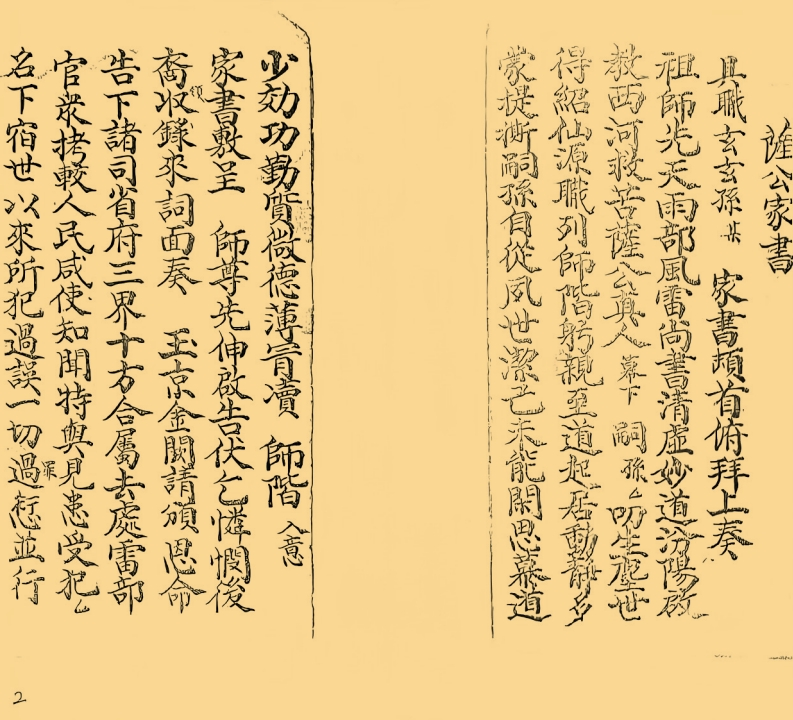 薩公家書
具職玄玄孫某　家書頓首俯拜上奏
祖師先天雨部風雷尚書清虛妙道汾陽啟
教西河救苦薩公真人幕下　嗣孫厶叨生塵世
得紹仙源職列師階躬親至道起居動靜多
蒙提撕嗣孫自從夙世潔己未能閑思慕道
少効功勤質微德薄冐瀆　師階入意
家書敷呈　師尊先伸啟告伏乞憐憫後
裔收領錄來詞面奏　玉京金闕請頒恩命
告下諸司省府三界十方合屬去處雷部
官衆拷較人民咸使知聞特與見患受犯厶
名下宿世以來所犯過誤一切過罪愆並行
2